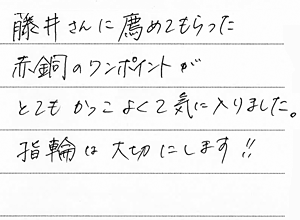 藤井さんに薦めてもらった
赤銅のワンポイントが
とてもかっこよくて気に入りました。
指輪は大切にします!!